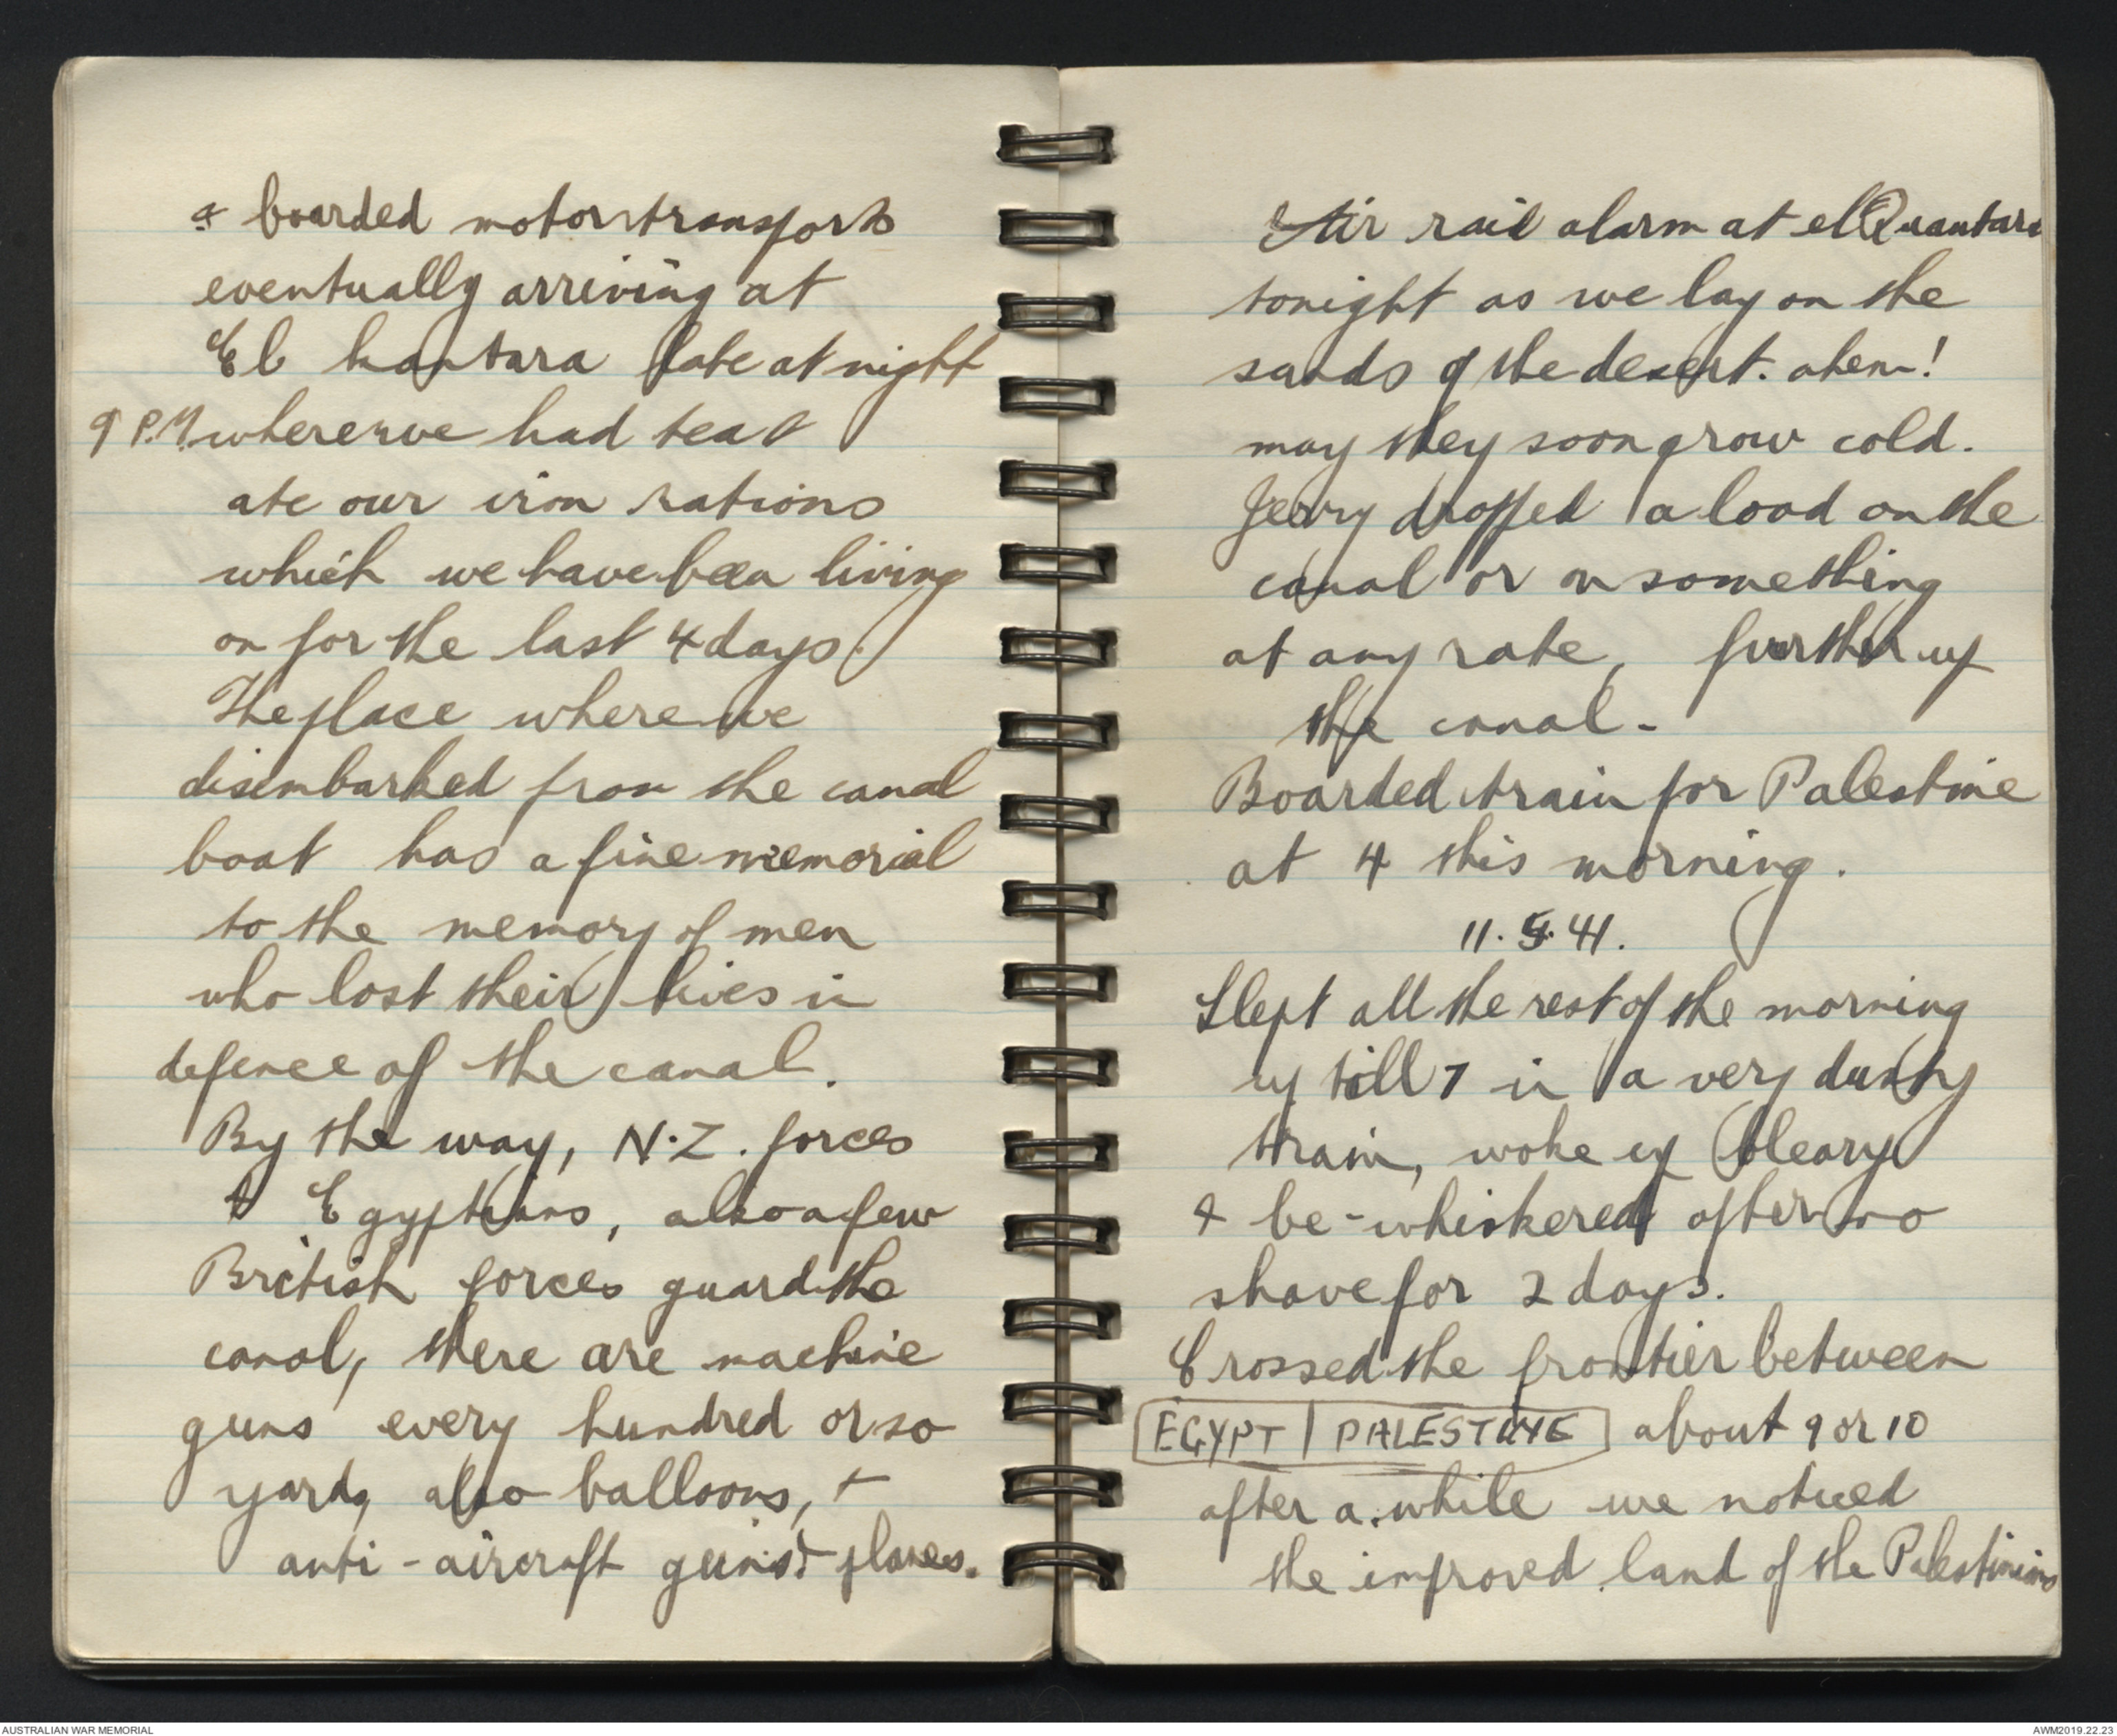 & boarded motor transports
eventually arriving at
El kantara late at night
9 P.M. where we had tea &
ate our iron rations
which we have been living
on for the last 4 days.
The place where we
disembarked from the canal
boat has a fine memorial
to the memory of men
who lost their lives in
defence of the canal.
By the way, N.Z. forces
& Egyptians, also a few
British forces guard the
canal, there are machine
guns every hundred or so
yards, also balloons, +
anti-aircraft guns & planes.
Air raid alarm at el Quantara
tonight as we lay on the
sands of the desert. ahem!
may they soon grow cold.
Jerry dropped a load on the
canal or on something
at any rate, further up
the canal -
Boarded train for Palestine
at 4 this morning.
11.5.41.
Slept all the rest of the morning
up till 7 in a very dusty
train, woke up bleary
& be-whiskered after no
shave for 2 days.
Crossed the frontier between
EGYPT | PALESTINE about 9 or 10
after a while we noticed
the improved land of the Palestinians
AUSTRALIAN WAR MEMORIAL
AWM2019.22.23